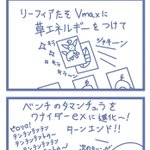 リーフィアたそ Vmaxに
草エネルギーをつけて
ジャキーン
ベンチのタマンチュラを
ワナイダーexに進化〜!
ターンエンド!!
ピロリロ!
テンテンテテテン
テンテンテテテン
次のターン